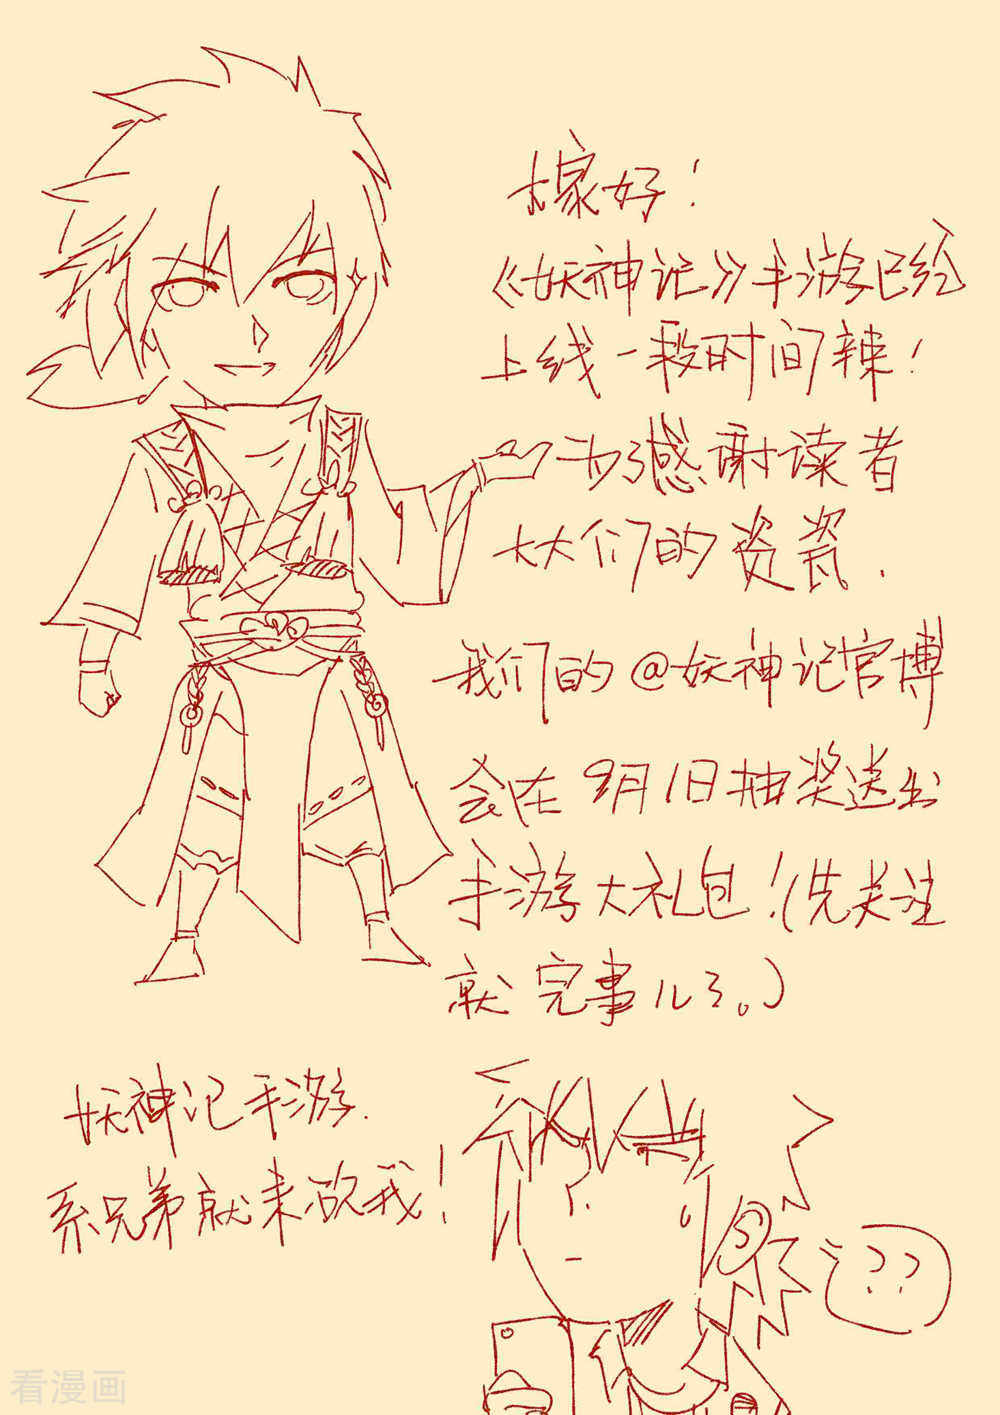 大家好！
《妖神记》手游已经
上线一段时间辣！
为了感谢读者
大大们的资瓷.
我们的@妖神记官博
会在9月1日抽奖送出
手游大礼包！(先关注
就完事儿了。)
妖神记手游.
系兄弟就来砍我！
??
看漫画